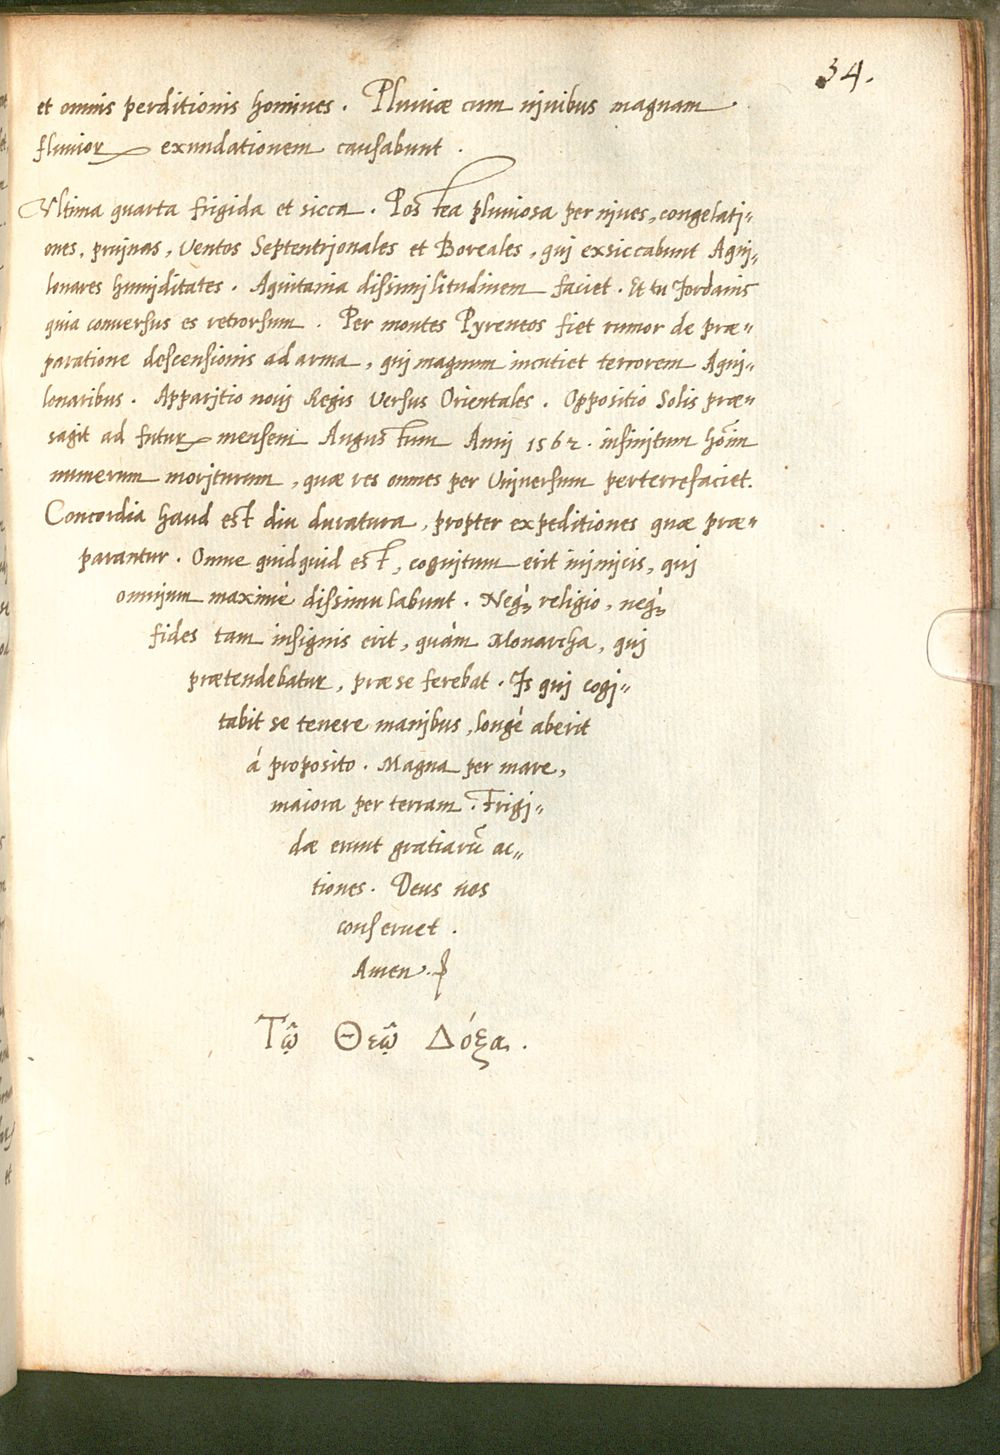 34.
et omnis perditionis homines. Pluviæ cum njvibus magnam
fluvior exundationem causabunt.
Vltima quarta frigida et sicca. Postea pluviosa per njves, congelatj„
ones, prujnas, Ventos Septentrjonales et Boreales, quj exsiccabunt Aquj„
lonares humjditates. Aquitania dissimjlitudinem faciet. Et tu Jordanis
quia conversus es retrorsum. Per montes Pyreneos fiet rumor de præ„
paratione descensionis ad arma, quj magnum incutiet terrorem Aquj„
lonaribus. Apparjtio novj Regis Versus Orientales. Oppositio Solis præ„
sagit ad futur mensem Augustum Annj 1562. infinjtum hōīm
numerum morjturum, quæ res omnes per Vnjversum perterrefaciet.
Concordia haud est diu duratura, propter expeditiones quæ præ„
parantur. Omne quidquid est, cognjtum erit injmjcis, quj
omnjum maximè dissimulabunt. Neq; religio, neq;
fides tam insignis erit, quàm Monarcha, quj
prætendebatur, præ se ferebat. Is quj cogj„
tabit se tenere manjbus, longè aberit
à proposito. Magna per mare,
maiora per terram. Frigj„
dæ erunt gratiarū ac„
tiones. Deus nos
conservet.
Amen.
Τῷ Θεῷ Δόξα.